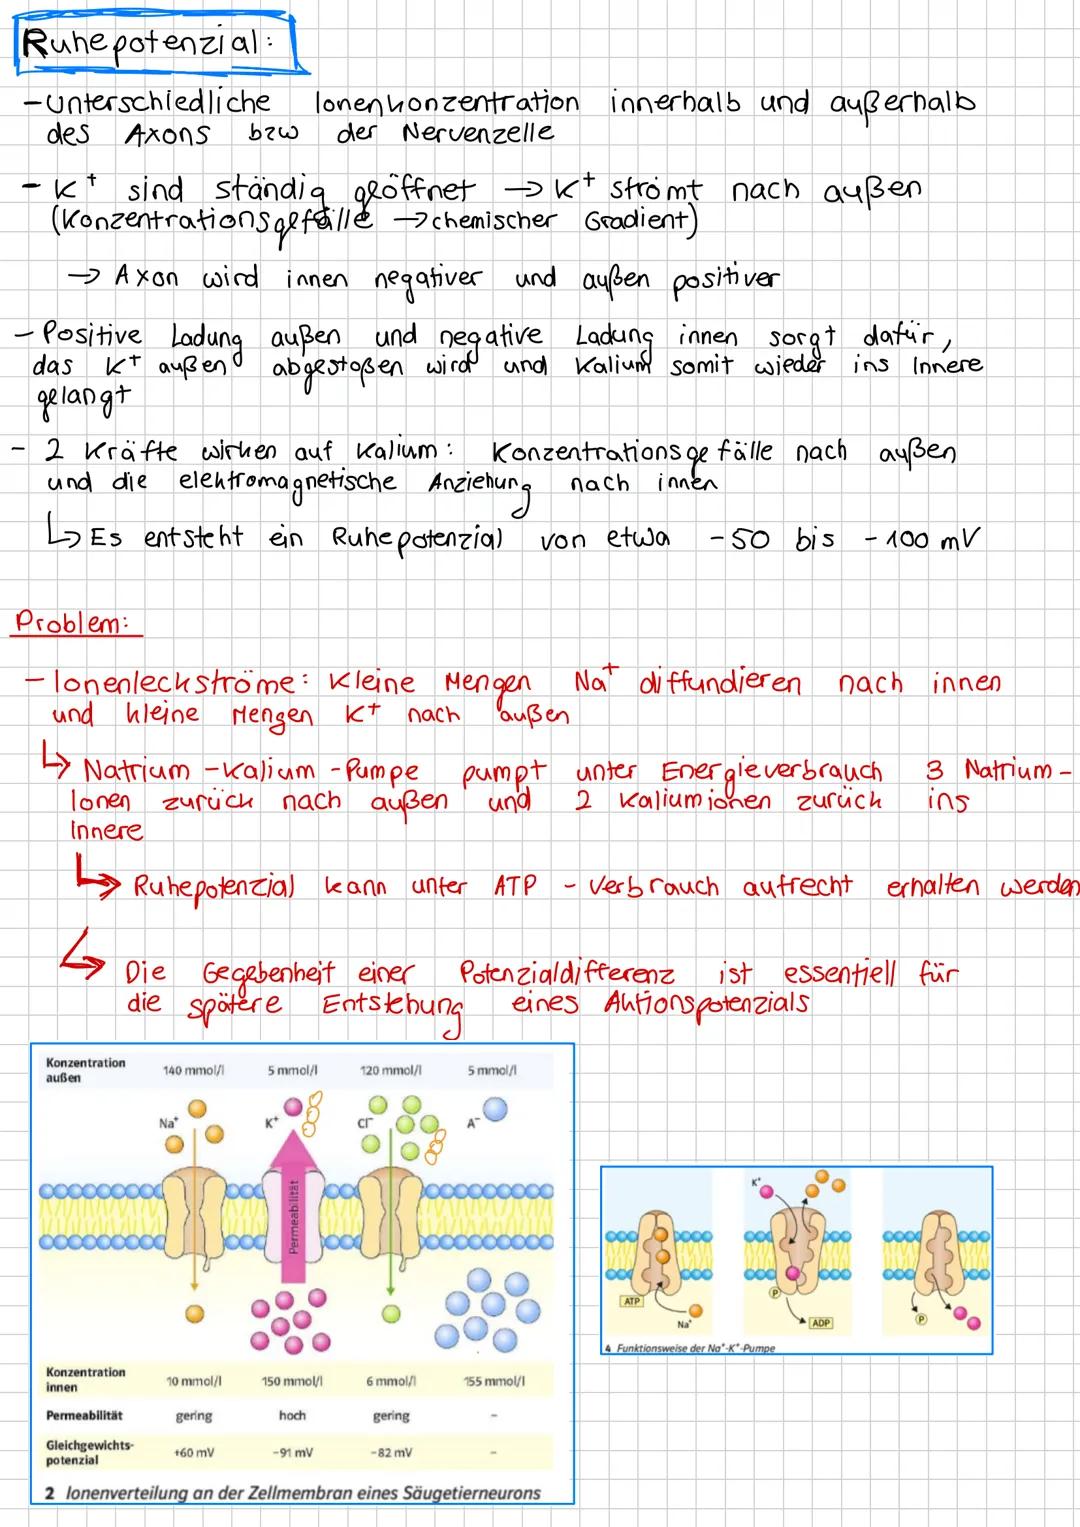 Ruhepotenzial:
-unterschiedliche Ionenkonzentration innerhalb und außerhalb
des Axons bzw der Nervenzelle
- K+ sind ständig geöffnet → K+ strömt nach außen
(Konzentrationsgefälle → chemischer Gradient)
→ Axon wird innen negativer und außen positiver
- Positive Ladung außen und negative Ladung innen sorgt dafür,
das K+ außen abgestoßen wird und Kalium somit wieder ins Innere
gelangt
- 2 Kräfte wirken auf Kalium: Konzentrationsgefälle nach außen
und die elektromagnetische Anziehung nach innen
↳ Es entsteht ein Ruhepotenzial von etwa -50 bis -100 mV
Problem:
- Ionenleckströme: Kleine Mengen Na+ diffundieren nach innen
und kleine Mengen K+ nach außen
↳ Natrium-Kalium-Pumpe pumpt unter Energieverbrauch 3 Natrium-
Ionen zurück nach außen und 2 Kaliumionen zurück ins
Innere
↳ Ruhepotenzial kann unter ATP - Verbrauch aufrecht erhalten werden
↳ Die Gegebenheit einer Potenzialdifferenz ist essentiell für
die spätere Entstehung eines Aktionspotenzials
Konzentration außen 140 mmol/l 5 mmol/l 120 mmol/l 5 mmol/l
Na+ K+ Cl- A-
Permeabilität
Konzentration innen 10 mmol/l 150 mmol/l 6 mmol/l 155 mmol/l
Permeabilität gering hoch gering -
Gleichgewichts-potenzial +60 mV -91 mV -82 mV -
2 Ionenverteilung an der Zellmembran eines Säugetierneurons
K+
ATP
Na+
P
ADP
P
4 Funktionsweise der Na+-K+-Pumpe